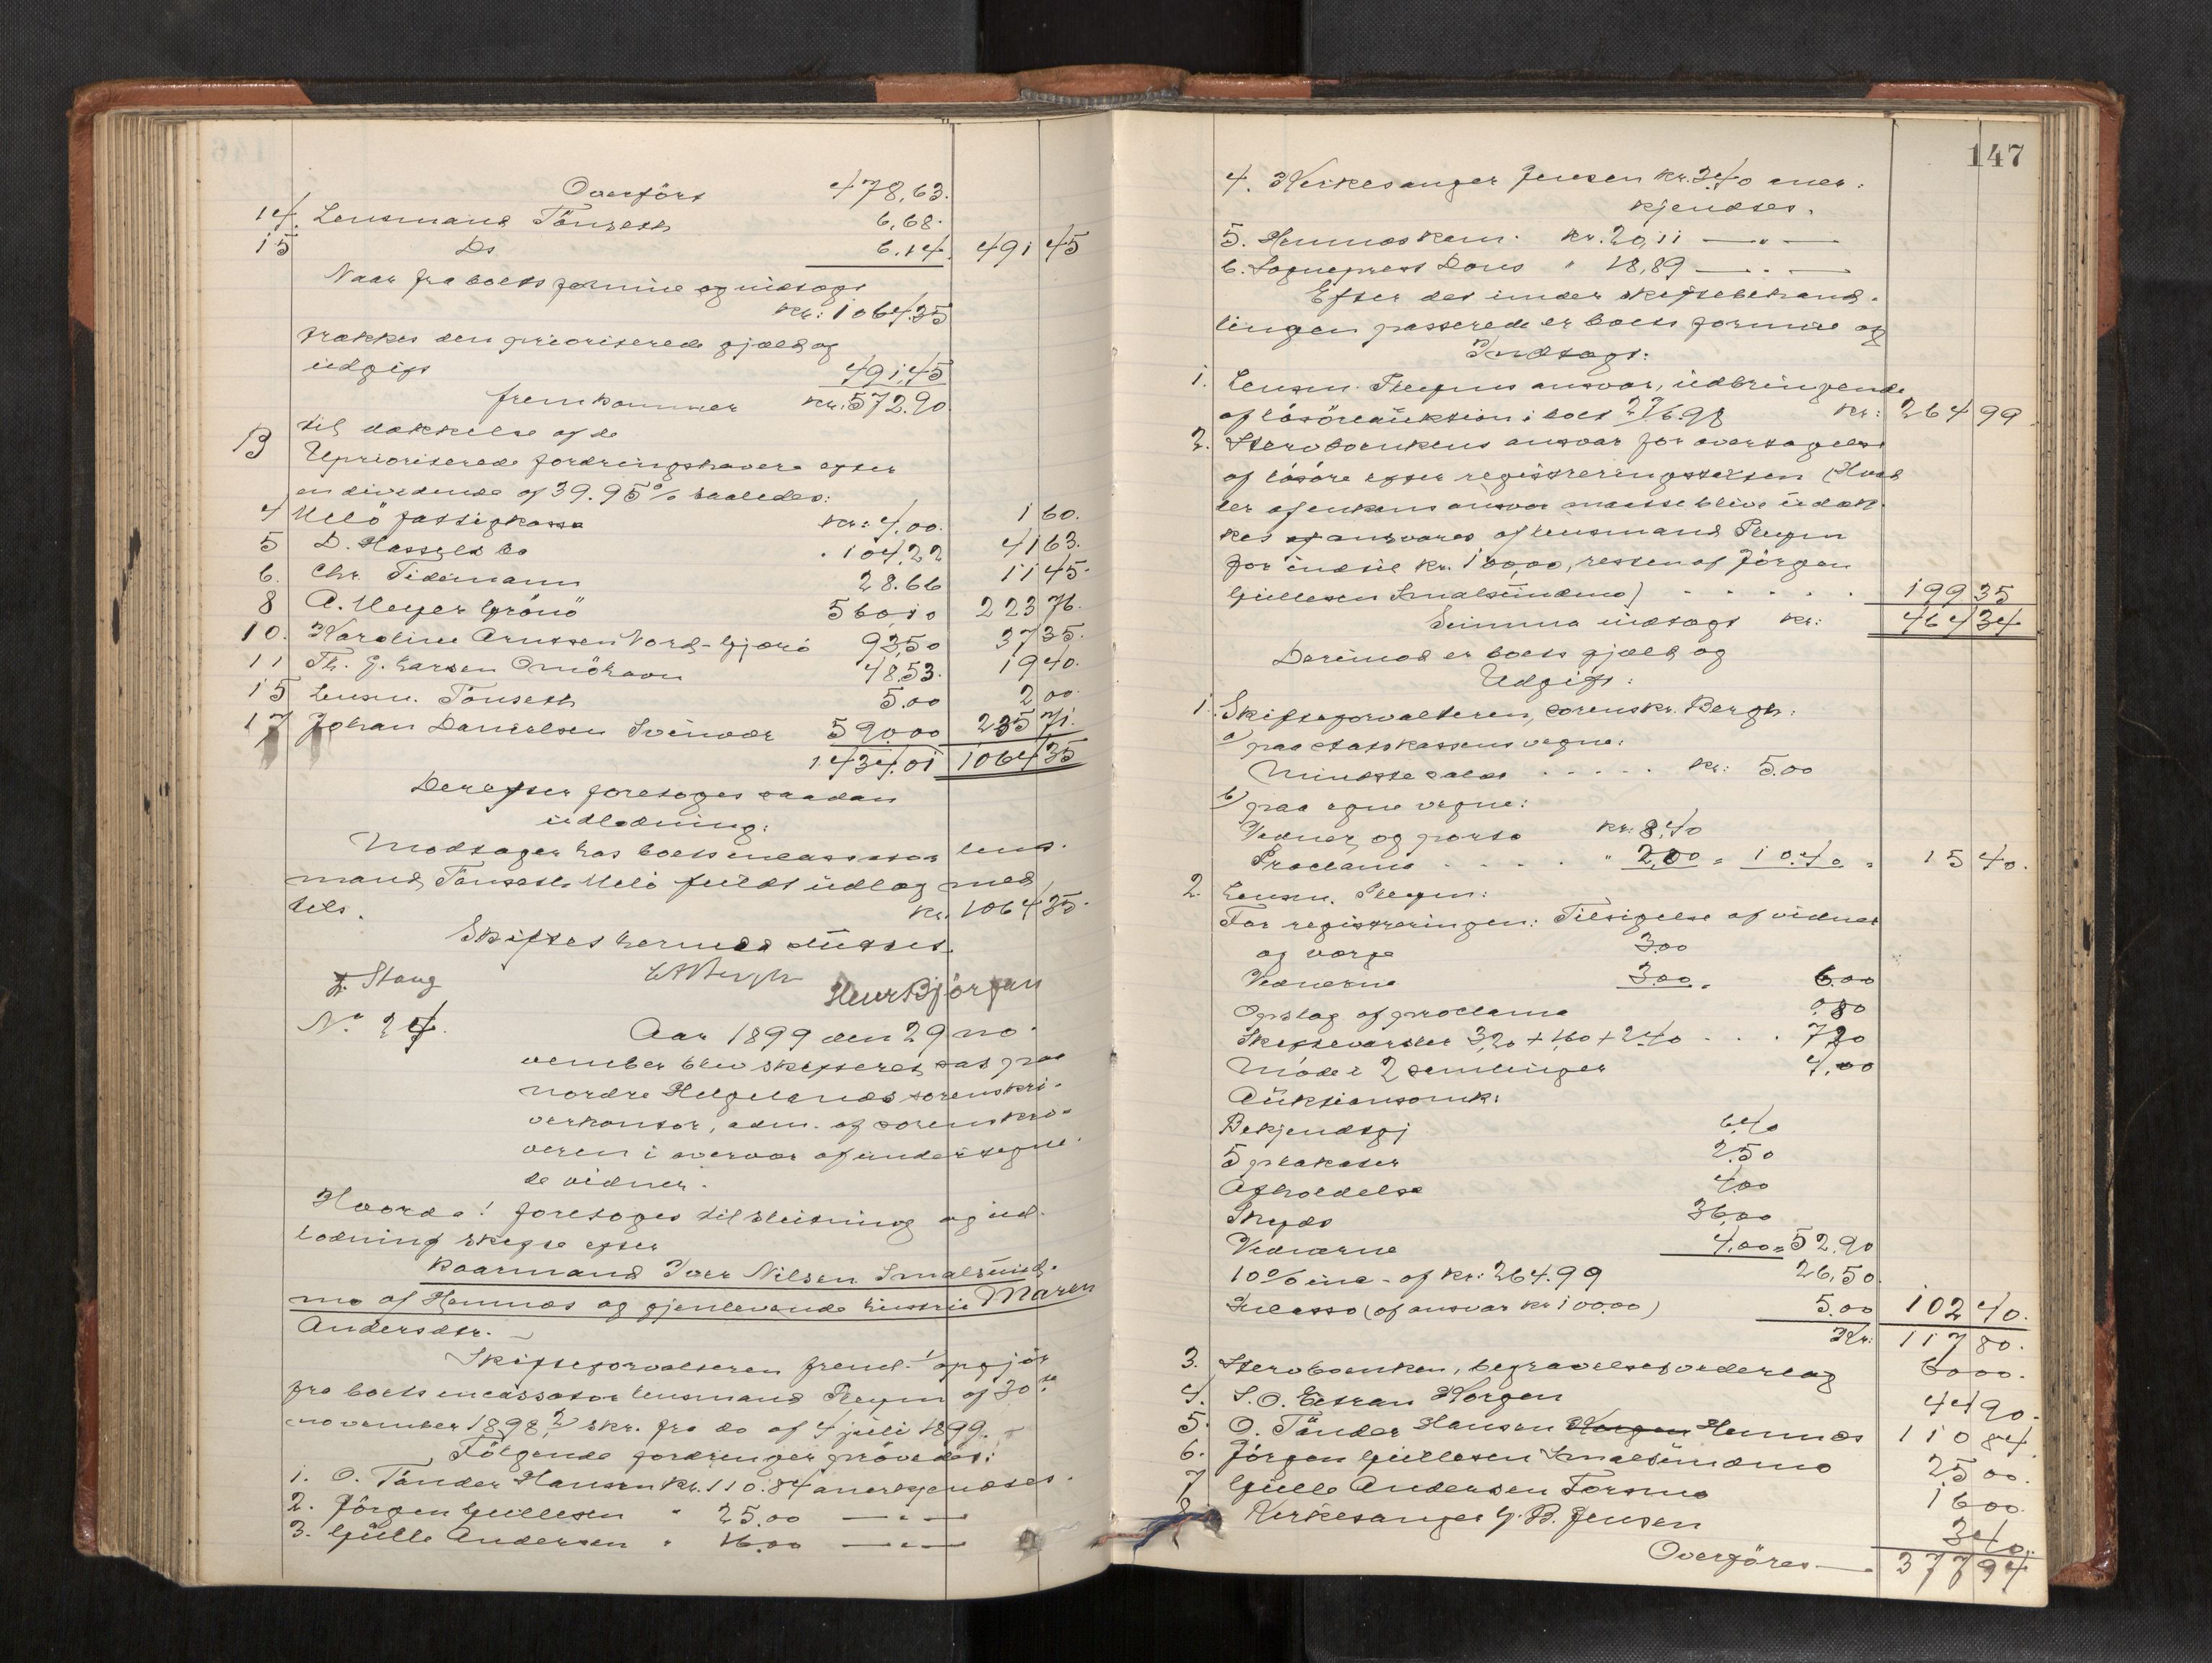 Overført 478,63.
14. Lensmand Tönseth 6,68.
15 Do 6.14. 491 45
Naar fra boets formue og indtægt
kr: 1064.35
trækkes den prioriterede gjæld og
udgift 491,45
fremkommer kr: 572.90
til dækkelse af de
B Uprioriterede fordringshavere efter
en dividende af 39.95% saaledes:
4 Melö fattigkasse kr: 4,00. 1 60.
5 D. Hassels bo " 104,22 41 63.
6. Chr. Tidemann 28.66 11 45.
8 A. Meyer Grönö 560,10 223 76.
10. Karoline Arntsen Nord-Gjærö 93,50 37 35.
11 Th. G. Larsen Omöhavn 48,53. 19 40.
15 Lensm. Tönseth 5.00 2 00.
17 Johan Danielsen Svinvær 590,00 235 71.
1.434.01 1064 35
Derefter foretoges saadan
udlodning:
Modtager hos boets incassator lens-
mand Tönseth Melö fuldt udlæg med
tils. kr. 1064 35.
Skiftet hermed sluttet.
J. Stang CABergh HenrBjörgan
No. 24. Aar 1899 den 29 no-
vember blev skifteret sat paa
nordre Helgelands sorenskri-
verkontor, adm. af sorenskri-
veren i overvær af undertegne-
de vidner.
Hvorda! foretoges til slutning og ud-
lodning skifte efter
kaarmand Iver Nilsen Smalsund-
mo af Hemnes og gjenlevende hustru Maren
Andersdtr. —
Skifteforvalteren freml. 1/ opgjør
fra boets incassator lensmand Steen af 30te
november 1898, 2/ skr. fra do af 4 juli 1899.
Følgende fordringer prøvedes:
1. O. Tånder Hansen kr. 110.84 anerkjendtes.
2. Jörgen Gullesen " 25.00 — " —
3. Gulle Andersen " 16.00 — " —
147
4. Kirkesanger Jensen kr. 3.40 aner-
kjendtes.
5. Hemnes kom. kr. 20,11 — " —
6. Sogneprest Dons " 18,89 — " —
Efter det under skiftebehand-
lingen passerede er boets formue og
Indtægt:
1. Lensm. Steens ansvar, udbringende
af løsöreauktion i boet 27/6.98 kr: 264 99
2. Stervboenkens ansvar for overtagelse
af løsöre efter registreringstaxten (Hvad
der af enkens ansvar maatte blive udæk-
ket ansvares af lensmand Steen
for indtil kr. 100,00, resten af Jörgen
Gullesen Smalsundmo) . . . . . 199 35
Summa indtægt kr: 464 34
Derimod er boets gjæld og
Udgift:
1. Skifteforvalteren, sorenskr. Bergh:
a) paa statskassens vegne:
Mindste salær . . . . . kr: 5.00
b) paa egne vegne:
Vidner og porto kr: 8,40
Proclama . . . . " 2,00 = 10.40 = 15 40.
2. Lensm. Steen:
For registreringen: Tilsigelse af vidner
og værge 3.00
Vidnerne 3.00 = 6.00
Opslag af proclama 0.80
Skiftevarsler 3,20 + 1,60 + 2.40 . . . 7,20
Möde i 2 samlinger 4,00
Auktionsomk:
Bekjendtgj 6.40
5 plakater 2.50
Afholdelse 4,00
Skyds 36,00
Vidnerne 4,00 = 52.90
10% ink. af kr: 264.99 26,50.
Incasso (af ansvar kr 100.00) 5.00 102 40.
Kr: 117 80.
3. Stervboenken, begravelsesvederlag 60 00.
4. S. O. Estran Korgen 44 90.
5. O. Tånder Hansen Korgen Hemnes 110 84.
6. Jörgen Gullesen Smalsundmo 25 00.
7 Gulle Andersen Forsmo 16 00.
8. Kirkesanger G. B. Jensen 3 40.
Overføres — 377 94